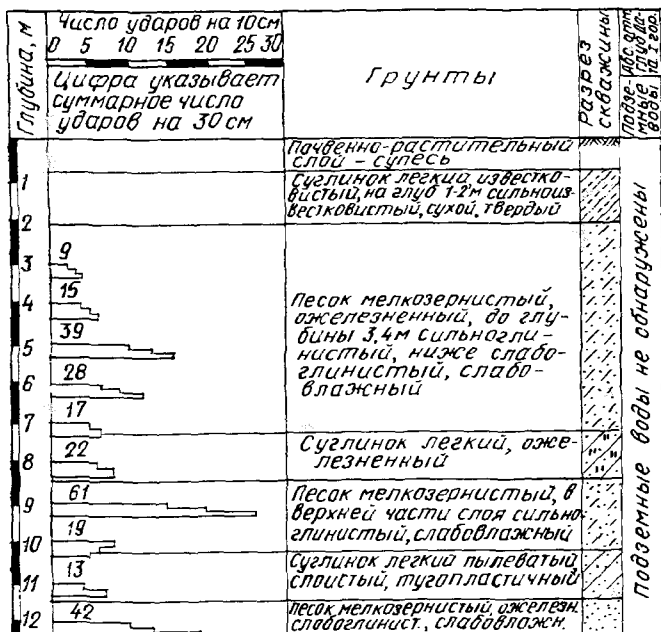 Глубина, м
Число ударов на 10см
0 5 10 15 20 25 30
Цифра указывает
суммарное число
ударов на 30 см
Грунты
Разрез
скважины
Подзе-
мные
воды
Абс. отм.
Глуб Да-
та, гор.
Почвенно-растительный
слой – супесь
Суглинок легкий, известко-
вистый, на глуб 1-2м сильноиз-
вестковистый, сухой, твердый
1
2
9
3
15
4
39
5
28
6
17
7
Песок мелкозернистый,
ожелезненный, до глу-
бины 3,4м сильногли-
нистый, ниже слабо-
глинистый, слабо-
влажный
22
8
Суглинок легкий, оже-
лезненный
61
9
19
10
Песок мелкозернистый, в
верхней части слоя сильно-
глинистый, слабовлажный
13
11
Суглинок легкий пылеватый,
слоистый, тугопластичный
42
12
Песок мелкозернистый, ожелезн.
слабоглинист., слабовлажн.
Подземные воды не обнаружены